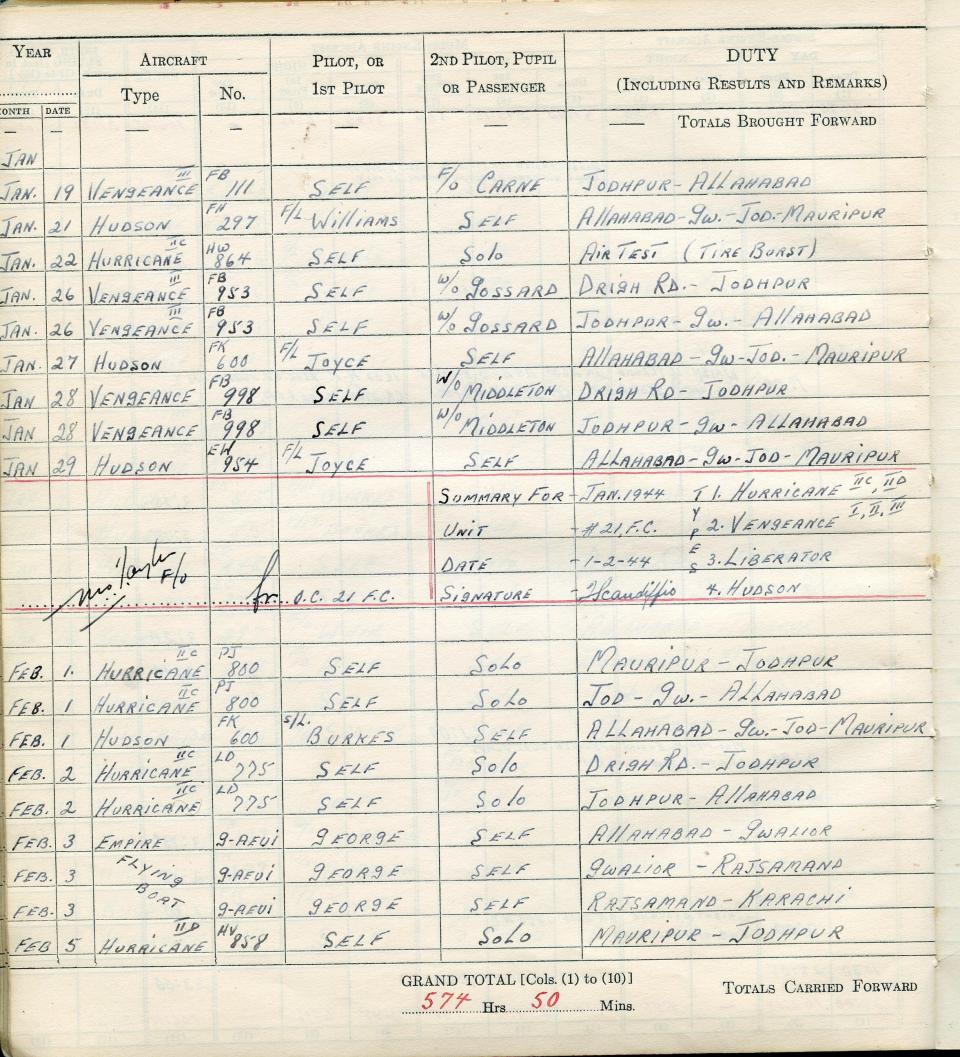 YEAR AIRCRAFT PILOT, OR 1ST PILOT 2ND PILOT, PUPIL OR PASSENGER DUTY (INCLUDING RESULTS AND REMARKS)
MONTH DATE Type No.
— — — — — — —— TOTALS BROUGHT FORWARD
JAN
JAN. 19 VENGEANCE III FB 111 SELF F/O CARNE JODHPUR - ALLAHABAD
JAN. 21 HUDSON FH 297 F/L WILLIAMS SELF ALLAHABAD-GW.-JOD-MAURIPUR
JAN. 22 HURRICANE IIC HW 864 SELF SOLO AIR TEST (TIRE BURST)
JAN. 26 VENGEANCE III FB 953 SELF W/O GOSSARD DRIGH RD.- JODHPUR
JAN. 26 VENGEANCE III FB 953 SELF W/O GOSSARD JODHPUR- GW.- ALLAHABAD
JAN. 27 HUDSON FK 600 F/L JOYCE SELF ALLAHABAD-GW-JOD.- MAURIPUR
JAN 28 VENGEANCE FB 998 SELF W/O MIDDLETON DRIGH RD- JODHPUR
JAN 28 VENGEANCE FB 998 SELF W/O MIDDLETON JODHPUR-GW- ALLAHABAD
JAN 29 HUDSON EW 954 F/L JOYCE SELF ALLAHABAD-GW-JOD-MAURIPUR
SUMMARY FOR - JAN. 1944 TYPES 1. HURRICANE IIC, IID
UNIT - #21, F.C. 2. VENGEANCE I, II, III
DATE - 1-2-44 3. LIBERATOR
F/O for O.C. 21 F.C. SIGNATURE - Scandiffio 4. HUDSON
FEB. 1. HURRICANE IIC PJ 800 SELF SOLO MAURIPUR - JODHPUR
FEB. 1 HURRICANE IIC PJ 800 SELF SOLO JOD - GW.- ALLAHABAD
FEB. 1 HUDSON FK 600 S/L. BURKES SELF ALLAHABAD-GW.-JOD-MAURIPUR
FEB. 2 HURRICANE IIC LD 775 SELF SOLO DRIGH RD.- JODHPUR
FEB. 2 HURRICANE IIC LD 775 SELF SOLO JODHPUR- ALLAHABAD
FEB. 3 EMPIRE G-AEUI GEORGE SELF ALLAHABAD - GWALIOR
FEB. 3 FLYING G-AEUI GEORGE SELF GWALIOR - RAJSAMAND
FEB. 3 BOAT G-AEUI GEORGE SELF RAJSAMAND-KARACHI
FEB 5 HURRICANE IID HV 858 SELF SOLO MAURIPUR - JODHPUR
GRAND TOTAL [Cols. (1) to (10)] TOTALS CARRIED FORWARD
574 Hrs. 50 Mins.